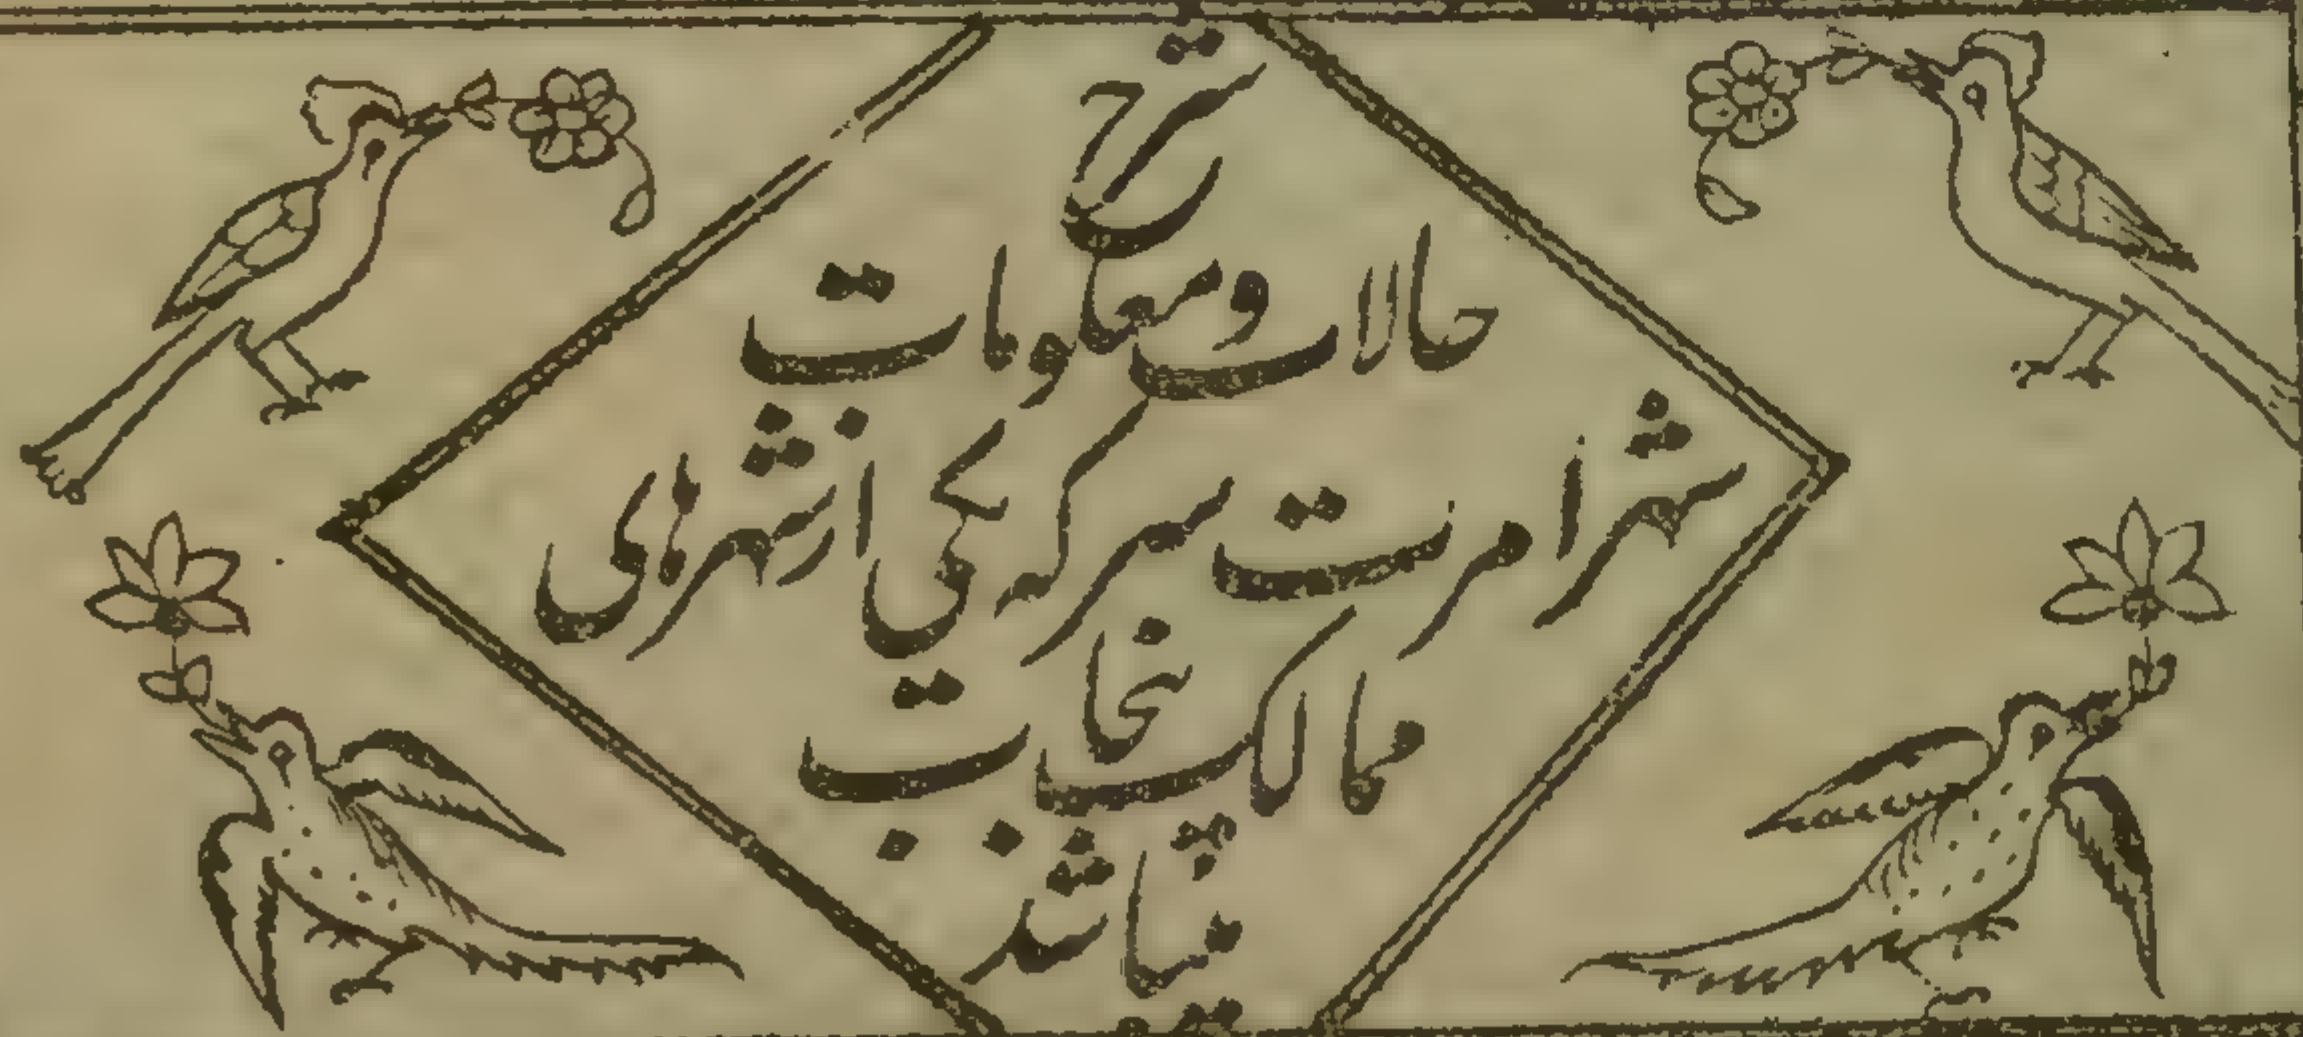 شرح
حالات و معلومات
شهر امرتسر که یکی از شهرهای
ممالک پنجاب است
میباشد